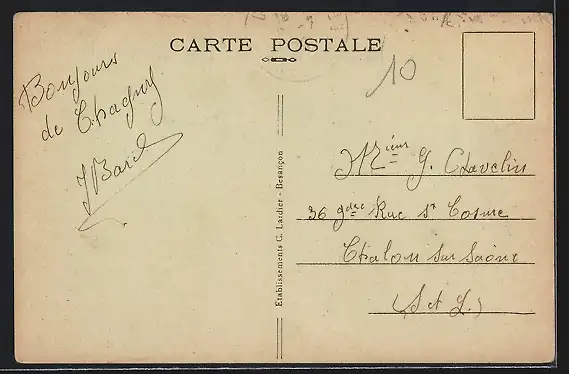 CARTE POSTALE
10
Bonjours
de Chagny
JBard
Etablissements C. Lardier - Besançon
Mr ieur G. Clavelin
36 gde Rue St Cosme
Chalon sur Saône
(S et L.)